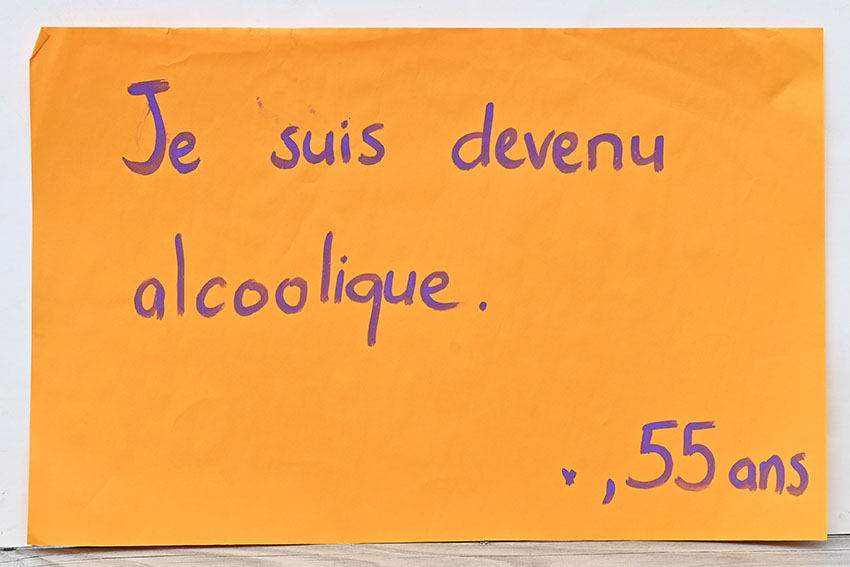 Je suis devenu
alcoolique.
*, 55 ans